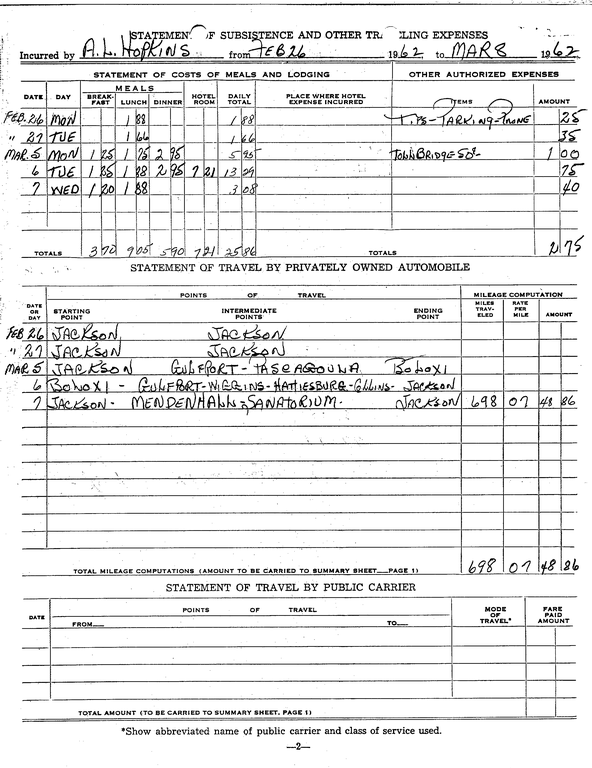 STATEMENT OF SUBSISTENCE AND OTHER TRAVELLING EXPENSES
Incurred by A.L. HOPKINS from FEB 26 1962 to MAR 8 1962
STATEMENT OF COSTS OF MEALS AND LODGING OTHER AUTHORIZED EXPENSES
DATE DAY MEALS BREAK-FAST LUNCH DINNER HOTEL ROOM DAILY TOTAL PLACE WHERE HOTEL EXPENSE INCURRED ITEMS AMOUNT
FEB. 26 MON 1 88 1 88 TIPS-PARKING-PHONE 25
" 27 TUE 1 66 1 66 35
MAR. 5 MON 1 25 1 75 2 95 5 95 1 00
6 TUE 1 25 1 88 2 95 7 21 13 29 75
7 WED 1 20 1 88 3 08 40
TOTALS 3 70 9 05 5 90 7 21 25 86 TOTALS 2 75
STATEMENT OF TRAVEL BY PRIVATELY OWNED AUTOMOBILE
DATE OR DAY POINTS OF TRAVEL MILEAGE COMPUTATION
STARTING POINT INTERMEDIATE POINTS ENDING POINT MILES TRAV-ELED RATE PER MILE AMOUNT
FEB 26 JACKSON JACKSON
" 27 JACKSON JACKSON
MAR. 5 JACKSON GULFPORT - PASCAGOULA BOLOXI
6 BOLOXI - GULFPORT-WIGGINS-HATIESBURG-COLLINS- JACKSON
7 JACKSON - MENDENHALL, SANATORIUM - JACKSON 698 07 48 86
TOTAL MILEAGE COMPUTATIONS (AMOUNT TO BE CARRIED TO SUMMARY SHEET PAGE 1) 698 07 48 86
STATEMENT OF TRAVEL BY PUBLIC CARRIER
DATE POINTS OF TRAVEL MODE OF TRAVEL* FARE PAID AMOUNT
FROM TO
TOTAL AMOUNT (TO BE CARRIED TO SUMMARY SHEET, PAGE 1)
*Show abbreviated name of public carrier and class of service used.
—2—